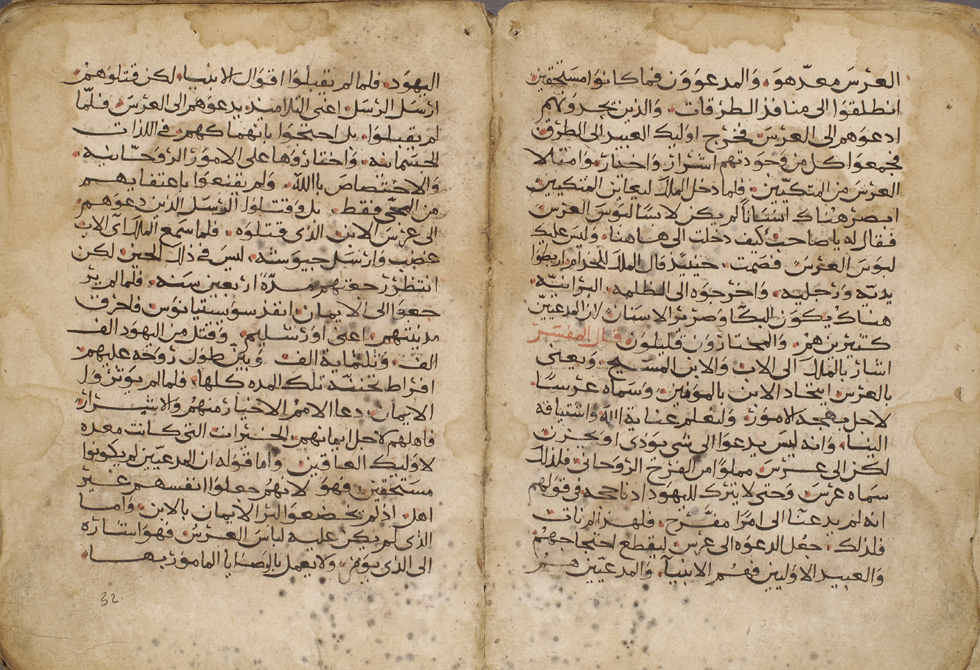 العرس معدّ هو، والمدعوون فما كانوا مستحقين
انطلقوا الى منافذ الطرقات والذين تجدونهم
ادعوهم الى العرس فخرج اوليك العبيد الى الطرق
فجمعوا كل من وجدوتهم اشرار واخيار وامتلا
العرس من المتكيين فلما دخل الملك ليعاين المتكيين
ابصر هناك انساناً لم يكن لابسا لبوس العرس
فقال له يا صاحب كيف دخلت الى هاهنا وليس عليك
لبوس العرس فصمت حينيذ قال الملك للخدام اربطوا
يديه ورجليه واخرجوه الى الظلمه البرانيه
هناك يكون البكا وصرير الاسنان لان المدعيين
كثيرين هم والمختارون قليلون قال المفسر
اشار بالملك الى الاب والابن المسيح ويعني
بالعرس اتحاد الابن بالمومنين وسماه عرسًا
لاجل بهجة الامور ولنعلم عناية الله واشتياقه
الينا وانه ليس يدعوا الى شي يوذي او يحزن
لكن الى عرس مملوا من الفرح الروحاني فلذلك
سماه عرس وحتى لا يترك لليهود اذا حجه في قولهم
انه لم يدعنا الى امرًا مفرح فلهذا لم نات
فلذلك جعل الدعوه الى عرس ليقطع احتجاجهم
والعبيد الاوليين فهم الانبيا والمدعيين هم
اليهود فلما لم يقبلوا اقوال الانبيا لكن قتلوهم
ارسل الرسل اعني التلاميذ يدعوهم الى العرس فلمّا
لم يقبلوا بل احتجوا بانهماكهم في اللذات
الجسمانيه واختاروها على الامور الروحانيه
والاختصاص بالله ولم يقنعوا باعتفايهم
من المجي فقط بل وقتلوا الرسل الذين دعوهم
الى عرس الابن الذي قتلوه فلما سمع الملك اي الاب
غضب وارسل جيوشه ليس في ذلك الحين لكن
انتظر رجعتهم مدّة اربعين سنه فلما لم ير
جعوا الى الايمان انفذ سوسبسيانوس فاحرق
مدينتهم اعني اورشليم وقتل من اليهود الف
الف وثلثماية الف وبيّن طول روحه عليهم
افراط تحننه تلك المده كلها فلما لم يوثروا
الايمان دعا الامم الاخيار منهم والاشرار
فاهلهم لاجل ايمانهم الخيرات التي كانت معده
لاوليك العاقين واما قوله ان المدعيين لم يكونوا
مستحقين فهو لانهم جعلوا انفسهم غير
اهل اذ لم يخضعوا لنير الايمان بالابن واما
الذي لم يكن عليه لباس العرس فهو اشاره
الى الذي يومن ولا يعمل بالوصايا المامور بها
32.